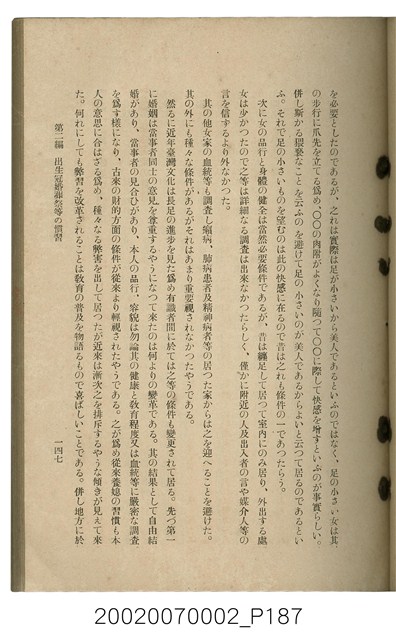 を必要としたのであるが、之れは實際は足が小さいから美人であるといふのではなく、足の小さい女は其
の歩行に爪先を立てる爲め、〇〇の肉附がよくなり隨つて〇〇に際して快感を增すといふのが事實らしい。
併し斯かる猥褻なことを云ふのを避けて足の小さいのが美人であるからよいと云つて居るのであるとい
ふ。それで足の小さいものを望むのは此の快感に在るので昔は之れも條件の一であつたらう。
次に女の品行と身體の健全は當然必要條件であるが、昔は纏足して居つて室內にのみ居り、外出する處
女は少かつたので之等は詳細なる調査は出來なかつたらしく、僅かに附近の人及出入者の言や媒介人等の
言を信ずるより外なかつた。
其の他女家の血統等も調査し癩病、肺病患者及精神病者等の居つた家からは之を迎へることを避けた。
其の外にも種々な條件があるがそれはあまり重要視されなかつたやうである。
然るに近年臺灣文化は長足の進步を見た爲め有識者間に於ては之等の條件も變更されて居る。先づ第一
に婚姻は當事者同士の意見を尊重するやうになつて來たのは何よりの變革である。其の結果として自由結
婚があり、當事者の見合ひがあり、本人の品行、容貌は勿論其の健康と敎育程度又は血統等に嚴密な調査
を爲す樣になり、古來の財的方面の條件が從來より輕視されたやうである。之が爲め從來養媳の習慣も本
人の意思に合はざる爲め、種々なる弊害を出して居つたが近來は漸次之を排斥するやうな傾きが見えて來
た。何れにしても弊習を改革されることは敎育の普及を物語るもので喜ばしいことである。併し地方に於
第二編 出生冠婚葬祭等の慣習
一四七
20020070002_P187